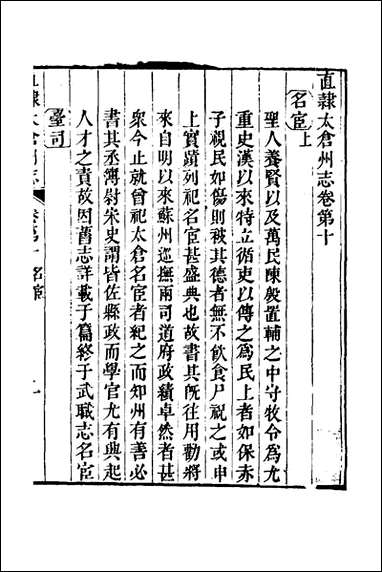 直隷太倉州志卷第十
名宦上
聖人養賢以及萬民陳殷置輔之中守牧令爲尤
重史漢以來特立循吏以傳之爲民上者如保赤
子視民如傷則被其德者無不飲食尸祝之或申
上實蹟列祀名宦甚盛典也故書其既往用勸將
來自明以來蘇州巡撫兩司道府政績卓然者甚
衆今止就曾祀太倉名宦者紀之而知州有善必
書其丞簿尉朱史謂皆佐縣政而學官尤有興起
人才之責故因舊志詳載于篇終于武職志名宦
臺司
直隷太倉州志
卷第十 名宦
一